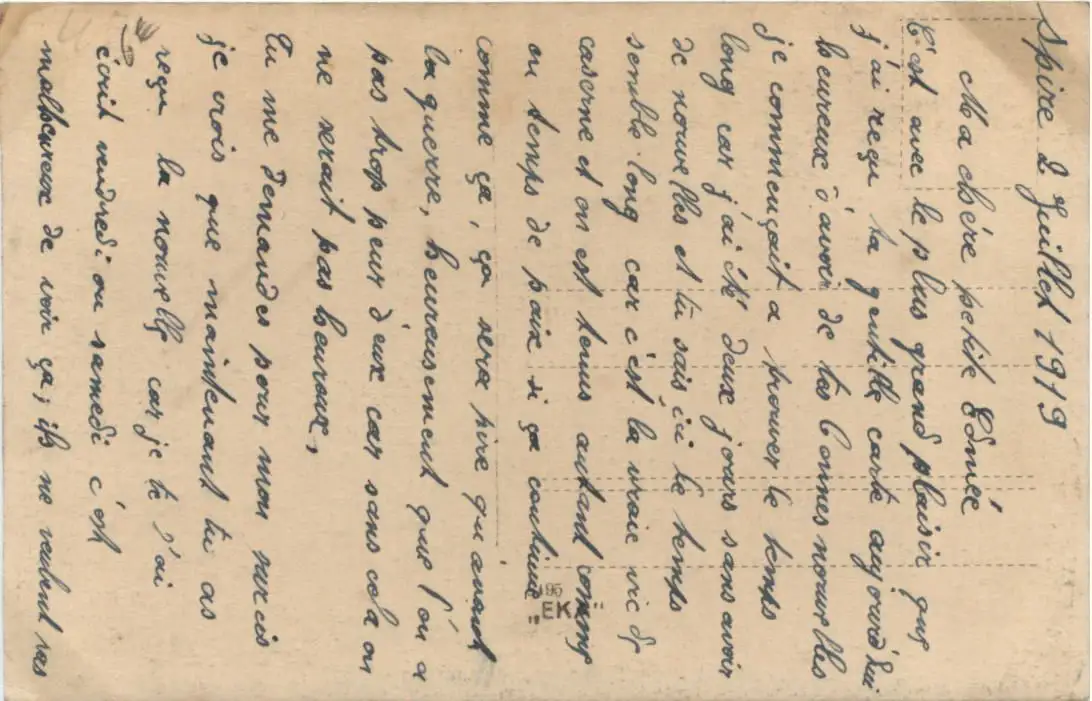 Spire 2 Juillet 1919
Ma chère petite Edmée
C'est avec le plus grand plaisir que
j'ai reçu ta gentille carte aujourd'hui
heureux d'avoir de tes bonnes nouvelles
je commençait a trouver le temps
long car j'ai été deux jours sans avoir
de nouvelles et tu sais ici le temps
semble long car c'est la vraie vie de
caserne et on est tenus autant comme
en temps de paix si ça continue
comme ça, ça sera pire qu'avant
la guerre, heureusement que l'on a
pas trop peur d'eux car sans cela on
ne serait pas heureux,
Tu me demandes pour mon sursis
je crois que maintenant tu as
reçu la nouvelle car je te l'ai
écrit vendredi ou samedi c'est
malheureux de voir ça, ils ne veulent pas
195
"EK"